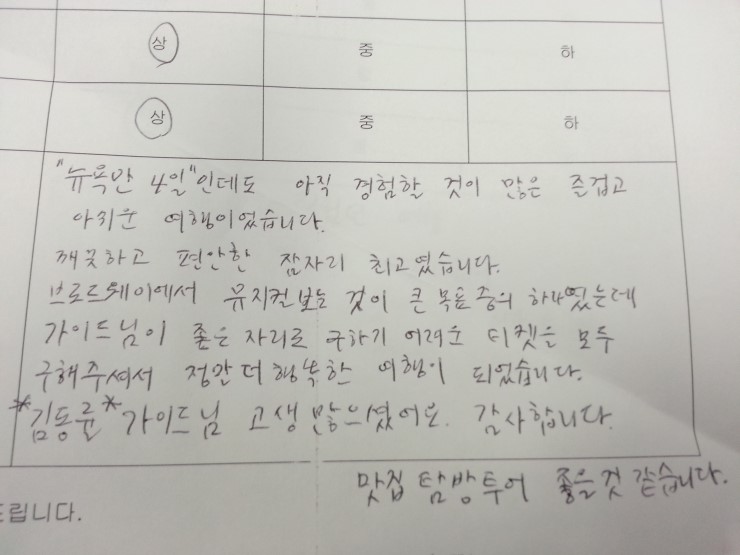 상 중 하
상 중 하
"뉴욕만 4일"인데도 아직 경험할 것이 많은 즐겁고
아쉬운 여행이었습니다.
깨끗하고 편안한 잠자리 최고였습니다.
브로드웨이에서 뮤지컬보는 것이 큰 목표중의 하나였는데
가이드님이 좋은 자리로 구하기 어려운 티켓을 모두
구해주셔서 정말 더 행복한 여행이 되었습니다.
*김동률* 가이드님 고생 많으셨어요. 감사합니다.
맛집 탐방투어 좋을것 같습니다.
드립니다.